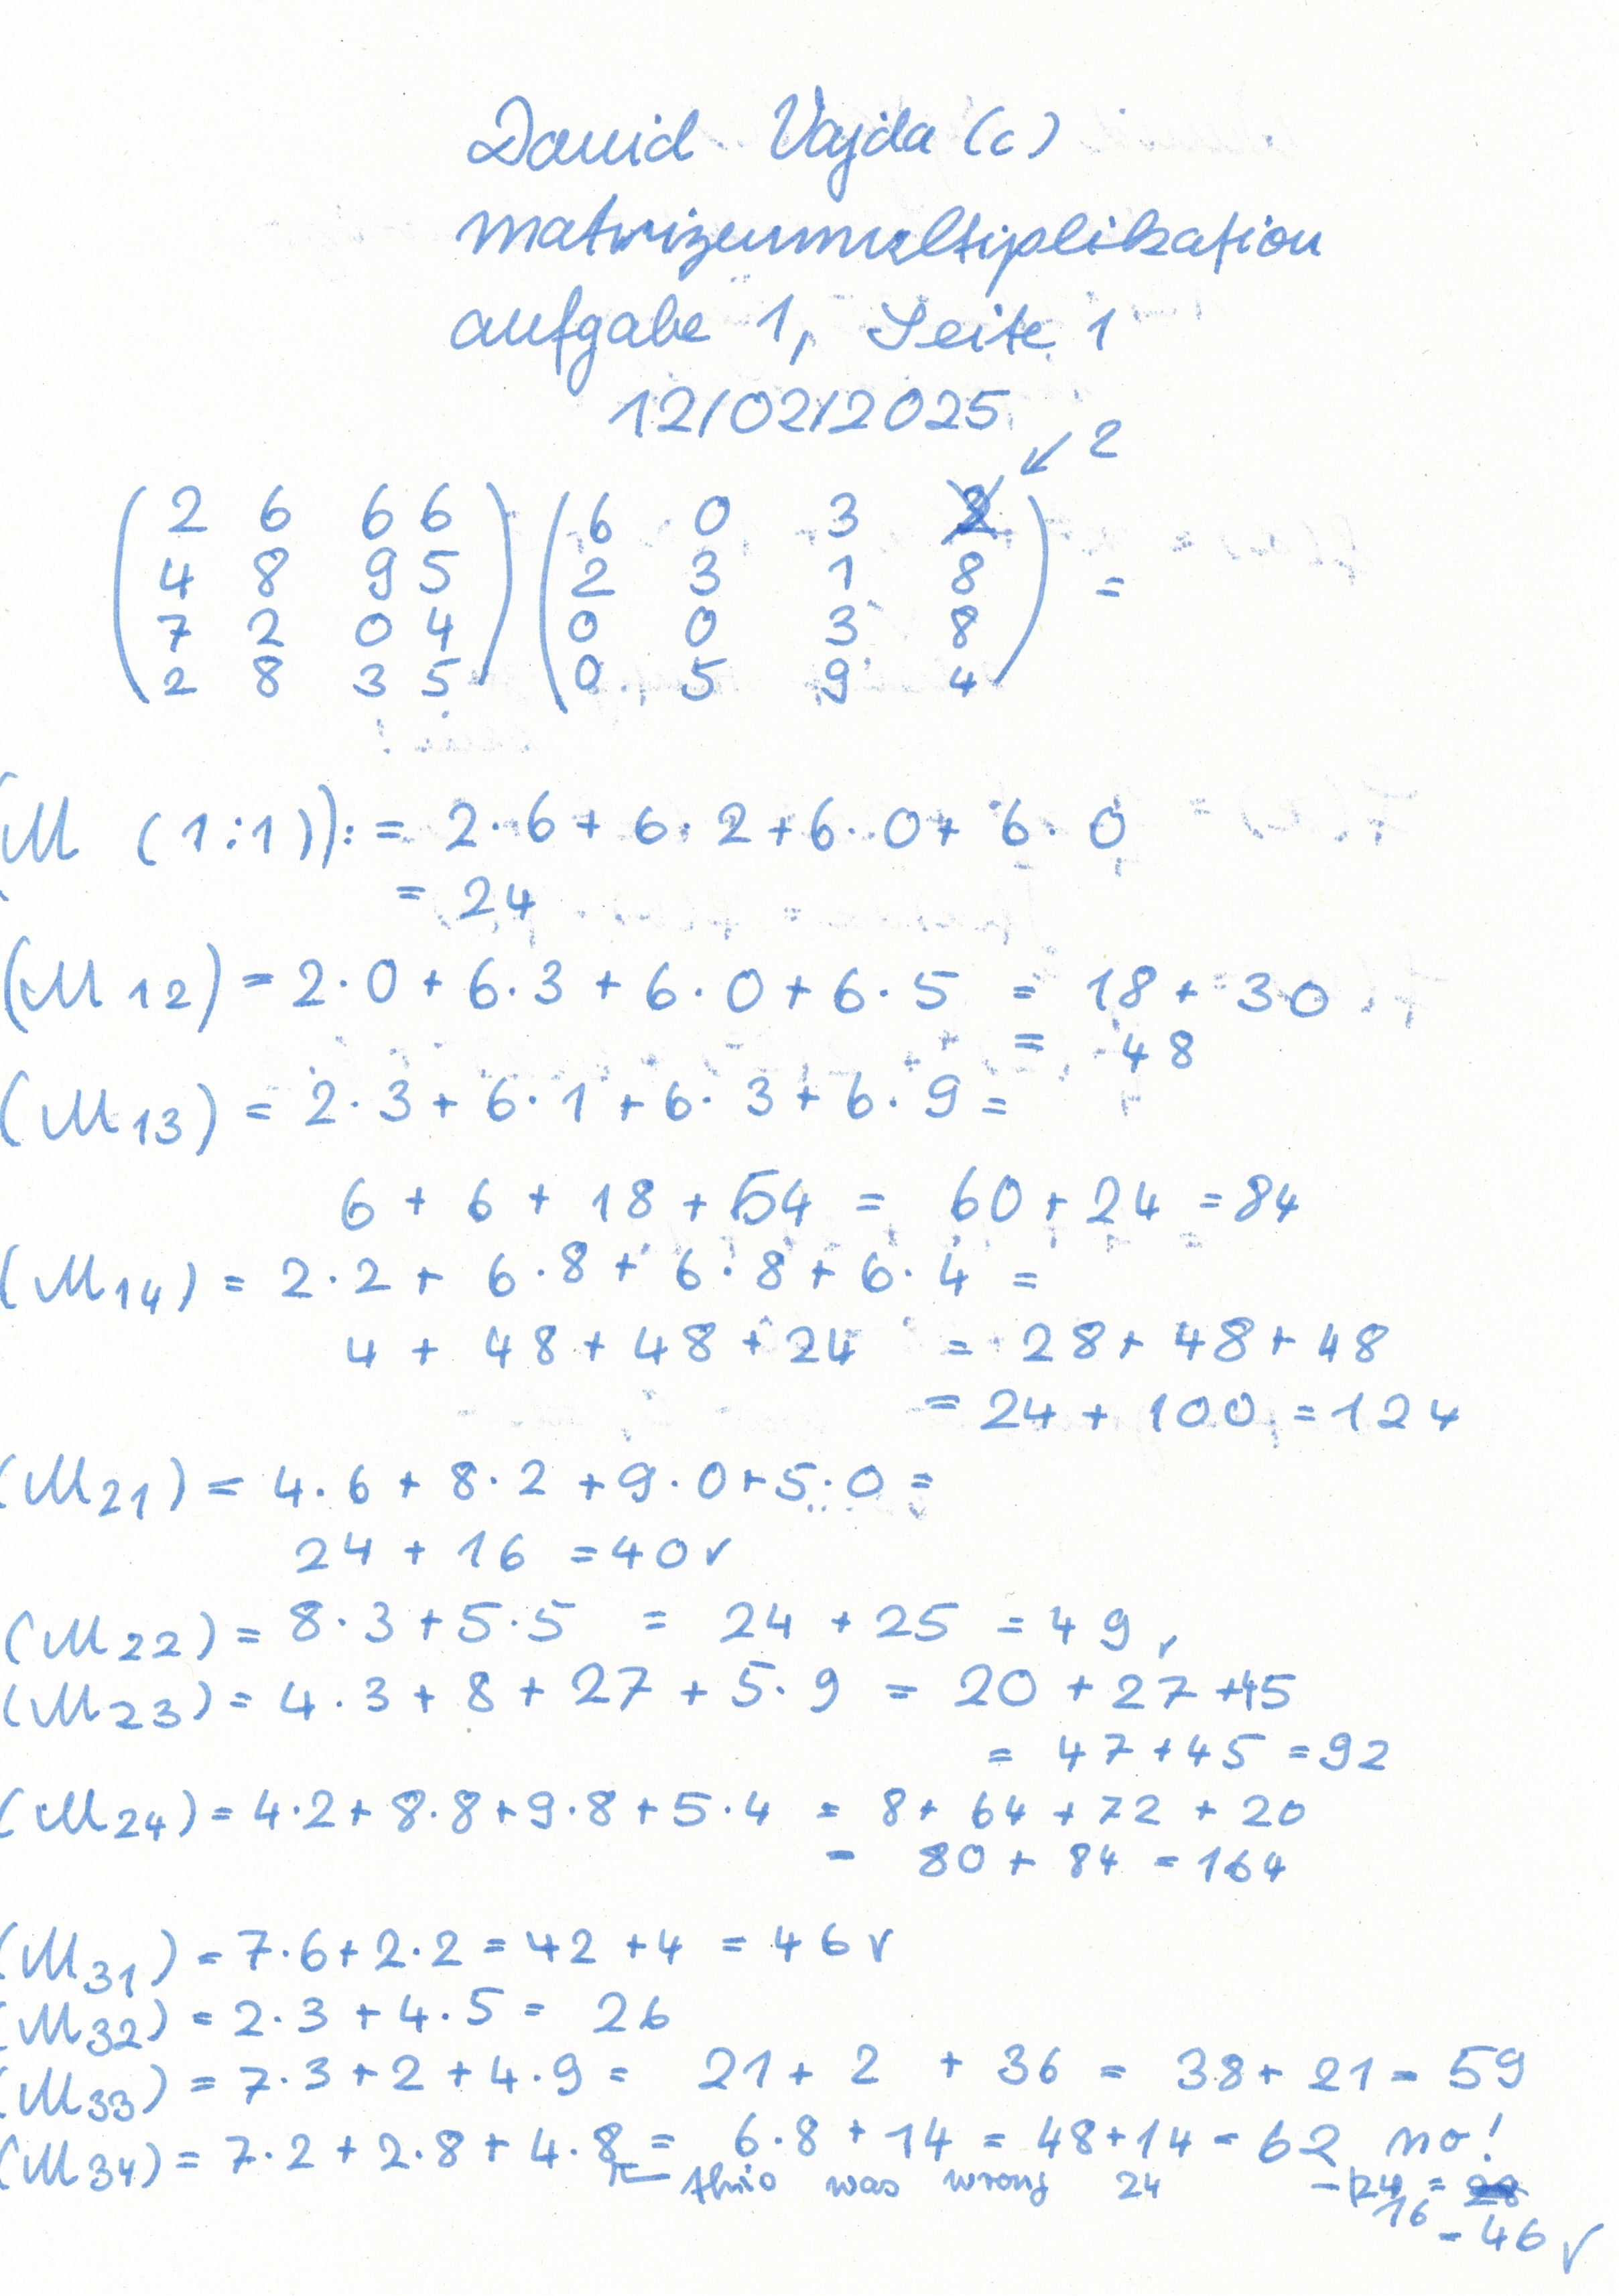 David Vajda (c)
Matrizenmultiplikation
Aufgabe 1, Seite 1
12/02/2025
↙ 2
( 2 6 6 6 ) ( 6 0 3
4 8 9 5 2 3 1 8 =
7 2 0 4 0 0 3 8
2 8 3 5 0 5 9 4 )
(M (1:1)):= 2·6 + 6·2 + 6·0 + 6·0
= 24
(M12) = 2·0 + 6·3 + 6·0 + 6·5 = 18 + 30
= 48
(M13) = 2·3 + 6·1 + 6·3 + 6·9 =
6 + 6 + 18 + 54 = 60 + 24 = 84
(M14) = 2·2 + 6·8 + 6·8 + 6·4 =
4 + 48 + 48 + 24 = 28 + 48 + 48
= 24 + 100 = 124
(M21) = 4·6 + 8·2 + 9·0 + 5·0 =
24 + 16 = 40 ✓
(M22) = 8·3 + 5·5 = 24 + 25 = 49 ✓
(M23) = 4·3 + 8 + 27 + 5·9 = 20 + 27 + 45
= 47 + 45 = 92
(M24) = 4·2 + 8·8 + 9·8 + 5·4 = 8 + 64 + 72 + 20
= 80 + 84 = 164
(M31) = 7·6 + 2·2 = 42 + 4 = 46 ✓
(M32) = 2·3 + 4·5 = 26
(M33) = 7·3 + 2 + 4·9 = 21 + 2 + 36 = 38 + 21 = 59
(M34) = 7·2 + 2·8 + 4·8 = 6·8 + 14 = 48 + 14 = 62 no!
this was wrong 24 - 24 =
16 = 46 ✓